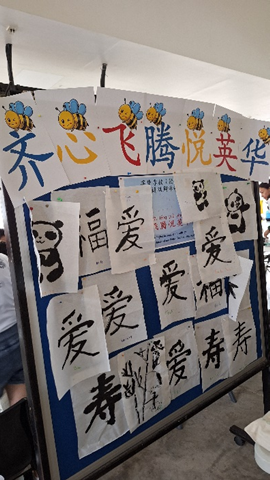 齐心飞腾悦英华
福 爱 爱
爱 爱 爱 福
爱 寿 爱 寿 寿